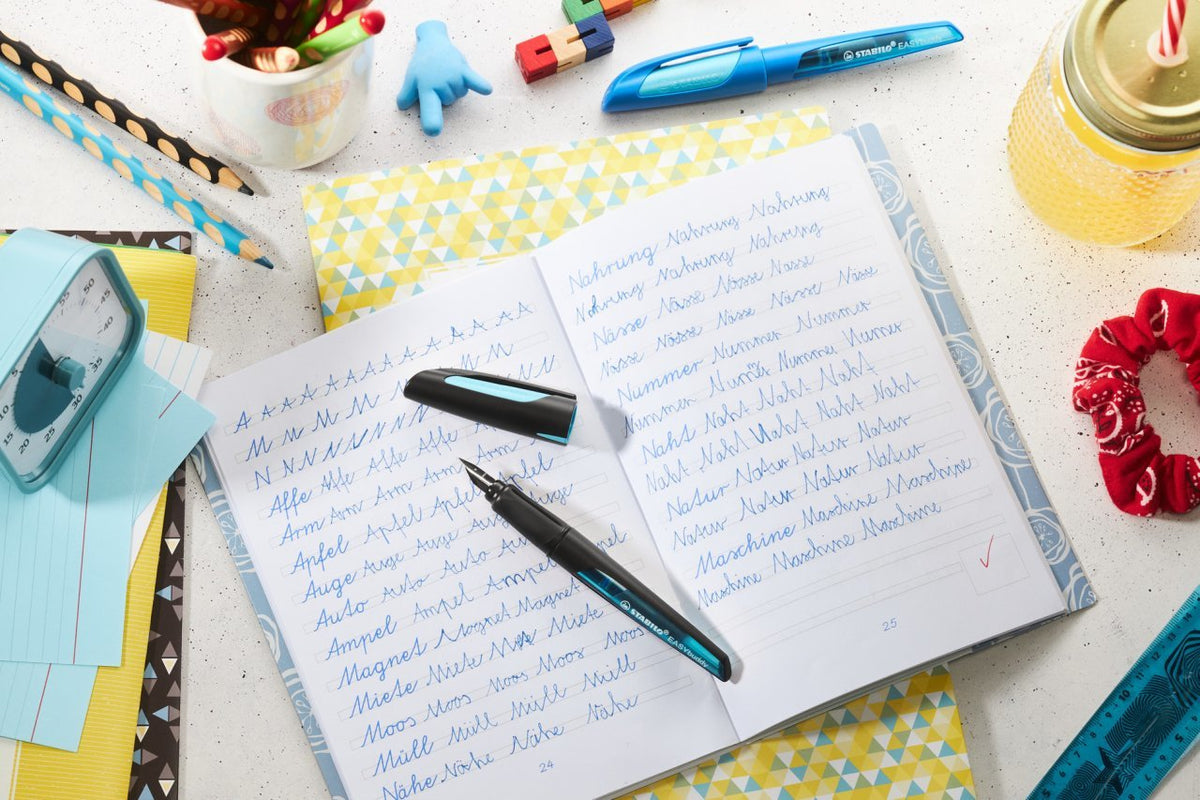 STABILO EASYbuddy
A A A A A A A A A A A A
M M M M M M M
N N N N N N N N N N
Affe Affe Affe Affe
Arm Arm Arm Arm Arm
Apfel Apfel Apfel Apfel
Auge Auge Auge Auge Auge
Auto Auto Auto
Ampel Ampel Ampel
Magnet Magnet Magnet
Miete Miete Miete Miete
Moos Moos Moos Moos
Müll Müll Müll Müll
Nähe Nähe Nähe Nähe
24
Nahrung Nahrung Nahrung
Nahrung Nahrung Nahrung
Nässe Nässe Nässe Nässe
Nässe Nässe Nässe Nässe Nässe
Nummer Nummer Nummer
Nummer Nummer Nummer
Naht Naht Naht Naht
Naht Naht Naht Naht Naht
Natur Natur Natur Natur
Natur Natur Natur Natur
Maschine Maschine Maschine
Maschine Maschine Maschine
25
STABILO EASYbuddy
55
45
40
35
30
25
20
15
10